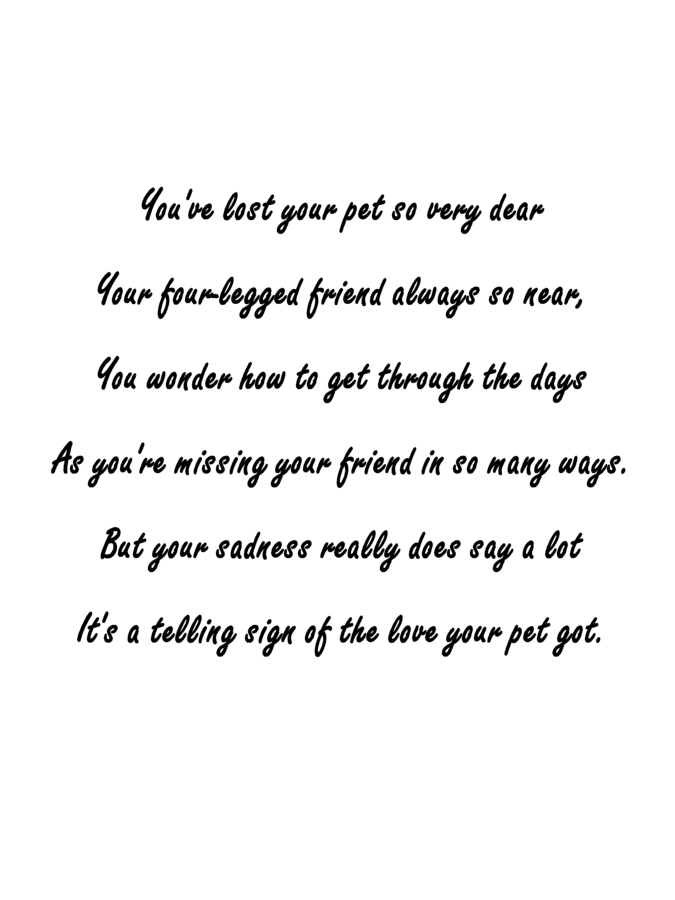 You've lost your pet so very dear
Your four-legged friend always so near,
You wonder how to get through the days
As you're missing your friend in so many ways.
But your sadness really does say a lot
It's a telling sign of the love your pet got.